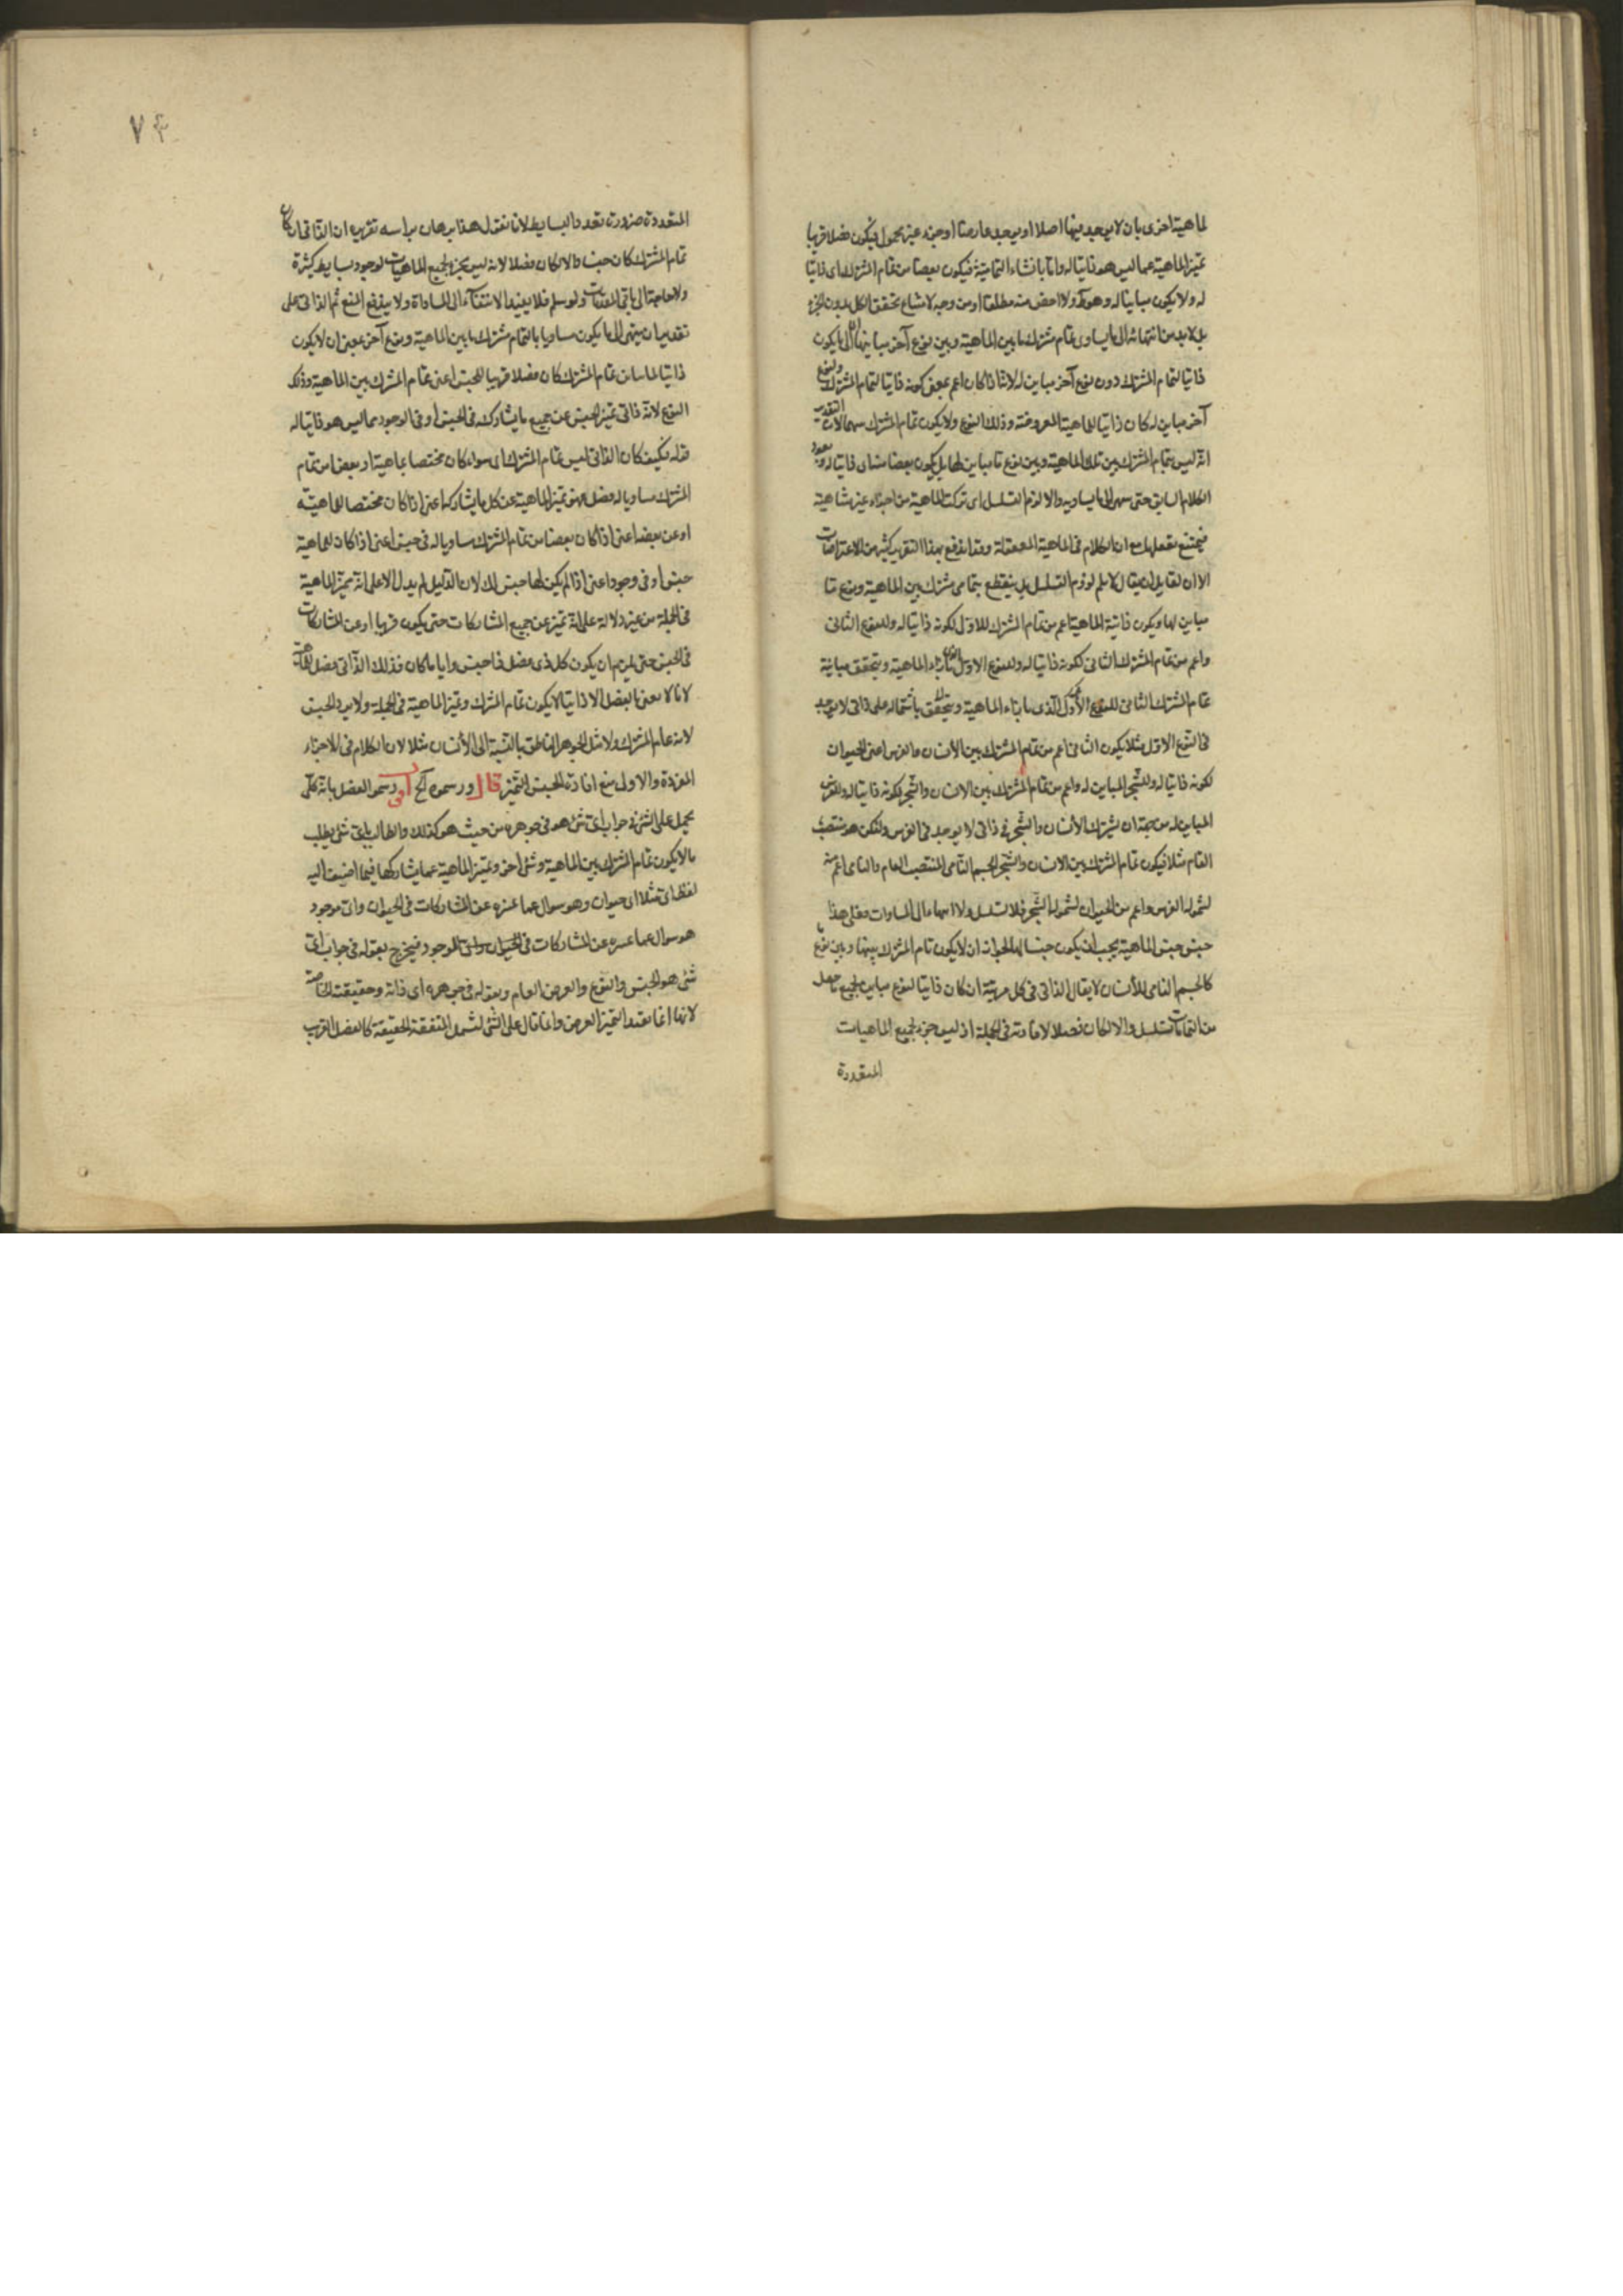 لماهية اخرى بان لا يوجد فيها اصلا او يوجد عارضا او جزء غير محمول فيكون فصلا قريبا
تميز الماهية عما ليس هو ذاتيا له واما بانتفاء التمامية فيكون بعضا من تمام المشترك اى ذاتيا
له ولا يكون مباينا له وهو ولا اخص منه مطلقا او من وجه لامتناع تحقق الكل بدون الجزء
بل لا بد من انتهائه الى ما يساوى تمام مشترك ما بين الماهية وبين نوع آخر مباينها اى الى ما يكون
ذاتيا لتمام المشترك دون نوع آخر مباين له لانه اذا كان اعم بمعنى كونه ذاتيا لتمام المشترك ولنوع
آخر مباين له كان ذاتيا للماهية المعروضة وذلك النوع ولا يكون تمام المشترك بينهما لان التقدير
انه ليس تمام المشترك بين تلك الماهية وبين نوع ما مباين لها بل يكون بعضا منه اى ذاتيا له ويعود
الكلام السابق حتى ينتهى الى ما يساويه والا لزم التسلسل اى تركب الماهية من اجزاء غير متناهية
فيمتنع تعقلها مع ان الكلام فى الماهية المعقولة وقد اندفع بهذا التقرير كثير من الاعتراضات
الا ان لقايل ان يقال لا نسلم لزوم التسلسل بل ينقطع بتمامى مشترك بين الماهية ونوع ما
مباين لها ويكون ذاتية الماهية اعم من تمام المشترك للاول لكونه ذاتيا له وللنوع الثانى
واعم من تمام المشترك الثانى لكونه ذاتيا له وللنوع الاول بازاء الماهية ويتحقق مباينة
تمام المشترك الثانى للنوع الاول الذى بازاء الماهية ويتحقق باشتماله على ذاتى لا يوجد
فى النوع الاول مثلا يكون الثانى اعم من تمام المشترك بين الانسان والفرس اعنى الحيوان
لكونه ذاتيا له وللشجر المباين له واعم من تمام المشترك بين الانسان والشجر لكونه ذاتيا له وللفرس
المباين له من جهة ان يشترك الانسان والشجر فى ذاتى لا يوجد فى الفرس وليكن هو منتصب
القام مثلا فيكون تمام المشترك بين الانسان والشجر الجسم النامى المنتصب القام والنامى اعم منه
لشموله الفرس واعم من الحيوان لشموله الشجر فلا تسلسل ولا انتهاء الى المساوات فعلى هذا
جنس جنس الماهية يجب ان يكون جنسا لها لجواز ان لا يكون تمام المشترك بينها وبين نوع ما
كالجسم النامى للانسان لا يقال الذاتى فى كل مرتبة ان كان ذاتيا لنوع مباين لجميع ما حصل
من التمامات تسلسل والا لكان فصلا لافادته فى الجملة اذ ليس جزء لجميع الماهيات
المتعددة
٧٤
المتعددة ضرورة تعدد البسايط لانا نقول هذا برهان براسه تقريره ان الذاتى ان كان
تمام المشترك كان جنسا والا لكان فصلا لانه ليس بجزء لجميع الماهيات لوجود بسايط كثيرة
ولا حاجة الى باقى المقدمات ولو سلم فلا يفيد الانتفاء الى المساواة ولا يندفع المنع ثم الذاتى على
تقدير ان ينتهى الى ما يكون مساويا بالتمام مشترك ما بين الماهية ونوع آخر بمعنى ان لا يكون
ذاتيا لما باين تمام المشترك كان فصلا قريبا للجنس اعنى تمام المشترك بين الماهية وذلك
النوع لانه ذاتى تميز الجنس عن جميع ما يشاركه فى الجنس او فى الوجود مما ليس هو ذاتيا له
قوله فكيف كان الذاتى ليس تمام المشترك اى سواء كان مختصا بماهية او بعضا من تمام
المشترك مساويا له فصل فهو تميز الماهية عن كل ما يشاركها اعنى اذا كان مختصا للماهية
او عن بعضه اعنى اذا كان بعضا من تمام المشترك مساويا له فى جنس اعنى اذا كان للماهية
جنس او فى وجود اعنى اذا لم يكن لها جنس لك لان الدليل لم يدل الا على انه تميز الماهية
فى الجملة من غير دلالة على انه تميز عن جميع المشاركات حتى يكون قريبا او عن المشاركات
فى الجنس حتى يلزم ان يكون كل ذى فصل ذا جنس وايا ما كان فذلك الذاتى فصل للماهية
لانا لا نعنى بالفصل الا ذاتيا لا يكون تمام المشترك وتميز الماهية فى الجملة ولا يرد الجنس
لانه تمام المشترك ولا مثل الجوهر الناطق بالنسبة الى الانسان مثلا لان الكلام فى الاجزاء
المفردة والاول منع افادة الجنس التميز قال ورسموه الخ اقول رسموا الفصل بانه كلى
يحمل على الشئ فى جواب اى شئ هو فى جوهره من حيث هو كذلك والطالب باى شئ يطلب
ما لا يكون تمام المشترك بين الماهية وشئ آخر وتميز الماهية عما يشاركها فيما اضيف اليه
لفظ اى مثلا اى حيوان وهو سوال عما تميزه عن المشاركات فى الحيوان واى موجود
هو سوال عما تميزه عن المشاركات فى الموجود فيخرج بقوله فى جواب اى
شئ هو الجنس والنوع والعرض العام وبقوله فى جوهره اى ذاته وحقيقته الخاصة
لانها انما تفيد التميز العرضى وانما قال على الشئ ليشمل المتفقة الحقيقة كالفصل القريب